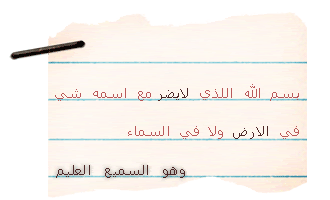 بسم الله اللذي لايضر مع اسمه شي
في الارض ولا في السماء
وهو السميع العليم